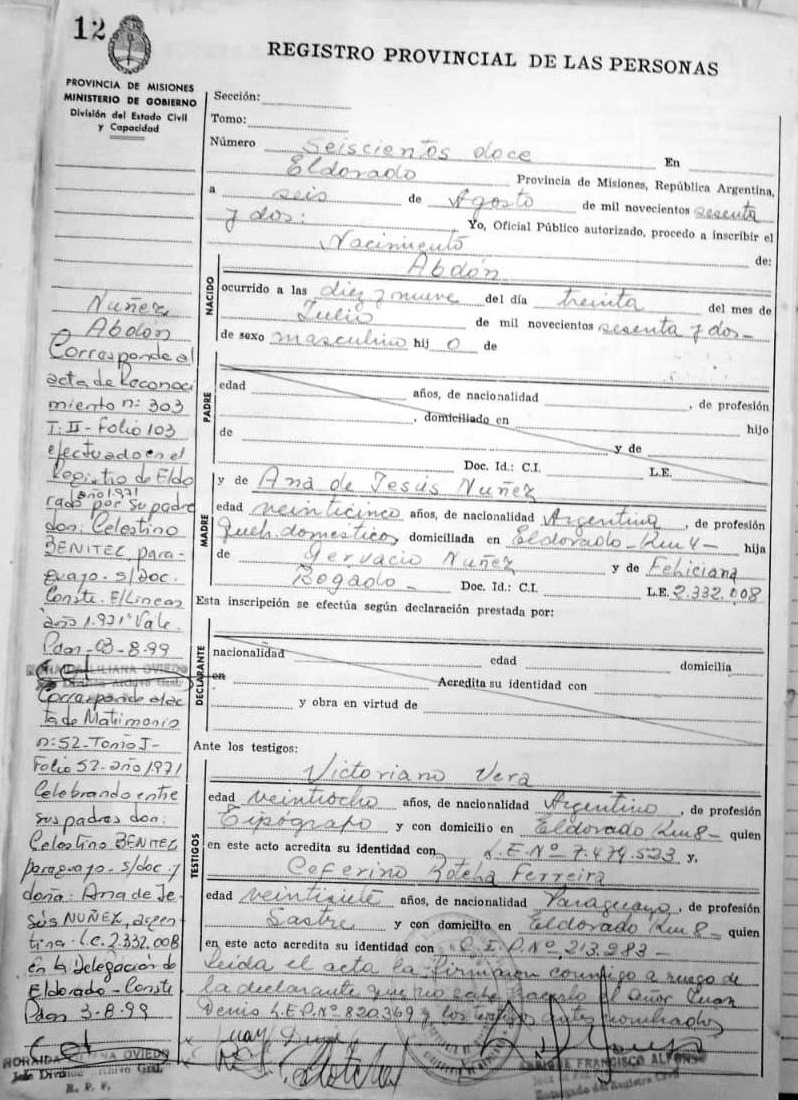 12
PROVINCIA DE MISIONES
MINISTERIO DE GOBIERNO
División del Estado Civil
y Capacidad
REGISTRO PROVINCIAL DE LAS PERSONAS
Sección:
Tomo:
Número seiscientos doce En
Eldorado Provincia de Misiones, República Argentina,
a seis de Agosto de mil novecientos sesenta
y dos: Yo, Oficial Público autorizado, procedo a inscribir el
Nacimiento de:
NACIDO
Abdón
ocurrido a las diez y nueve del día treinta del mes de
Julio de mil novecientos sesenta y dos-
de sexo masculino hij o de
PADRE
edad años, de nacionalidad , de profesión
, domiciliado en hijo
de y de
Doc. Id.: C.I. L.E.
MADRE
y de Ana de Jesús Nuñez
edad veinticinco años, de nacionalidad Argentina , de profesión
Queh. domésticos domiciliada en Eldorado-Km 4- hija
de Gervacio Nuñez y de Feliciana
Bogado- Doc. Id.: C.I. L.E. 2.332.008
Esta inscripción se efectúa según declaración prestada por:
DECLARANTE
nacionalidad edad domicilia
en Acredita su identidad con
y obra en virtud de
Ante los testigos:
TESTIGOS
Victoriano Vera
edad veintiocho años, de nacionalidad Argentino , de profesión
Tipógrafo y con domicilio en Eldorado Km 8- quien
en este acto acredita su identidad con L.E. Nº 7.474.523 y,
Ceferino Ferreira
edad veintisiete años, de nacionalidad Paraguayo , de profesión
Sastre y con domicilio en Eldorado Km 8- quien
en este acto acredita su identidad con C.I.P. Nº 213.983-
Leida el acta la firmaron conmigo a ruego de
la declarante que no sabe hacerlo el señor Juan
Denis L.E.P. Nº 820369 y los testigos antes nombrados
Nuñez
Abdón
Corresponde al
acta de Reconoci
miento n: 303
T: II- Folio 103
efectuado en el
Registro de Eldo
año 1.971
rado por su padre
don: Celestino
BENITEZ, para-
guayo. s/doc.
Conste. E/Lineas
año 1.971 Vale.
Pdas-03-8-99
LILIANA OVIEDO
Corresponde al ac
ta de Matrimonio
n: 52-Tomo I-
Folio 52-año 1971
Celebrando entre
sus padres don:
Celestino BENITEZ
paraguayo- s/doc. y
doña: Ana de Je-
sús NUÑEZ, argen-
tina-l.c. 2.332.008
en la Delegación de
Eldorado-Conste
Pdas 3-8-99
LILIANA OVIEDO
Jefe División Archivo Gral.
R. P. P.
FRANCISCO ALFONSO
Encargado del Registro Civil